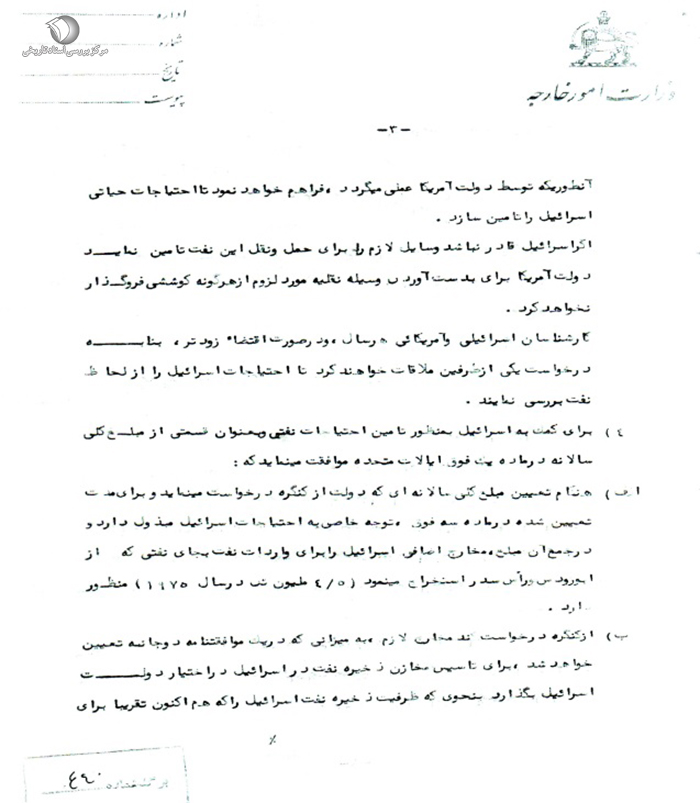 اداره
شماره
تاریخ
پیوست
مرکز بررسی اسناد تاریخی
وزارت امور خارجه
-۳-
آنطوریکه توسط دولت آمریکا عملی میگردد ، فراهم خواهد نمود تا احتیاجات حیاتی
اسرائیل را تامین سازد .
اگر اسرائیل قادر نباشد وسایل لازم را برای حمل ونقل این نفت تامین نماید
دولت آمریکا برای بدست آوردن وسیله نقلیه مورد لزوم از هرگونه کوششی فروگذار
نخواهد کرد .
کارشناسان اسرائیلی وآمریکائی هرسال ، ودرصورت اقتضاء زودتر ، بنابه
درخواست یکی از طرفین ملاقات خواهند کرد تا احتیاجات اسرائیل را از لحاظ
نفت بررسی نمایند .
٤) برای کمک به اسرائیل بمنظور تامین احتیاجات نفتی وبعنوان قسمتی از مبلغ کلی
سالانه درماده یک فوق ایالات متحده موافقت مینماید که :
الف) هنگام تعیین مبلغ کلی سالانه ای که دولت از کنگره درخواست مینماید و برای مدت
تعیین شده درماده سه فوق ، توجه خاصی به احتیاجات اسرائیل مبذول دارد و
درجمع آن مبلغ ، مخارج اضافی اسرائیل را برای واردات نفت بجای نفتی که از
ابورودس ورأس سدر استخراج مینمود (٤/٥ ملیون تن درسال ۱۹۷۵) منظور
دارد .
ب) از کنگره درخواست کند مخارج لازم ، به میزانی که دریک موافقتنامه دوجانبه تعیین
خواهد شد ، برای تاسیس مخازن ذخیره نفت در اسرائیل در اختیار دولت
اسرائیل بگذارد بنحوی که ظرفیت ذخیره نفت اسرائیل را که هم اکنون تقریبا برای
٪
برگ شماره ٤٤۰